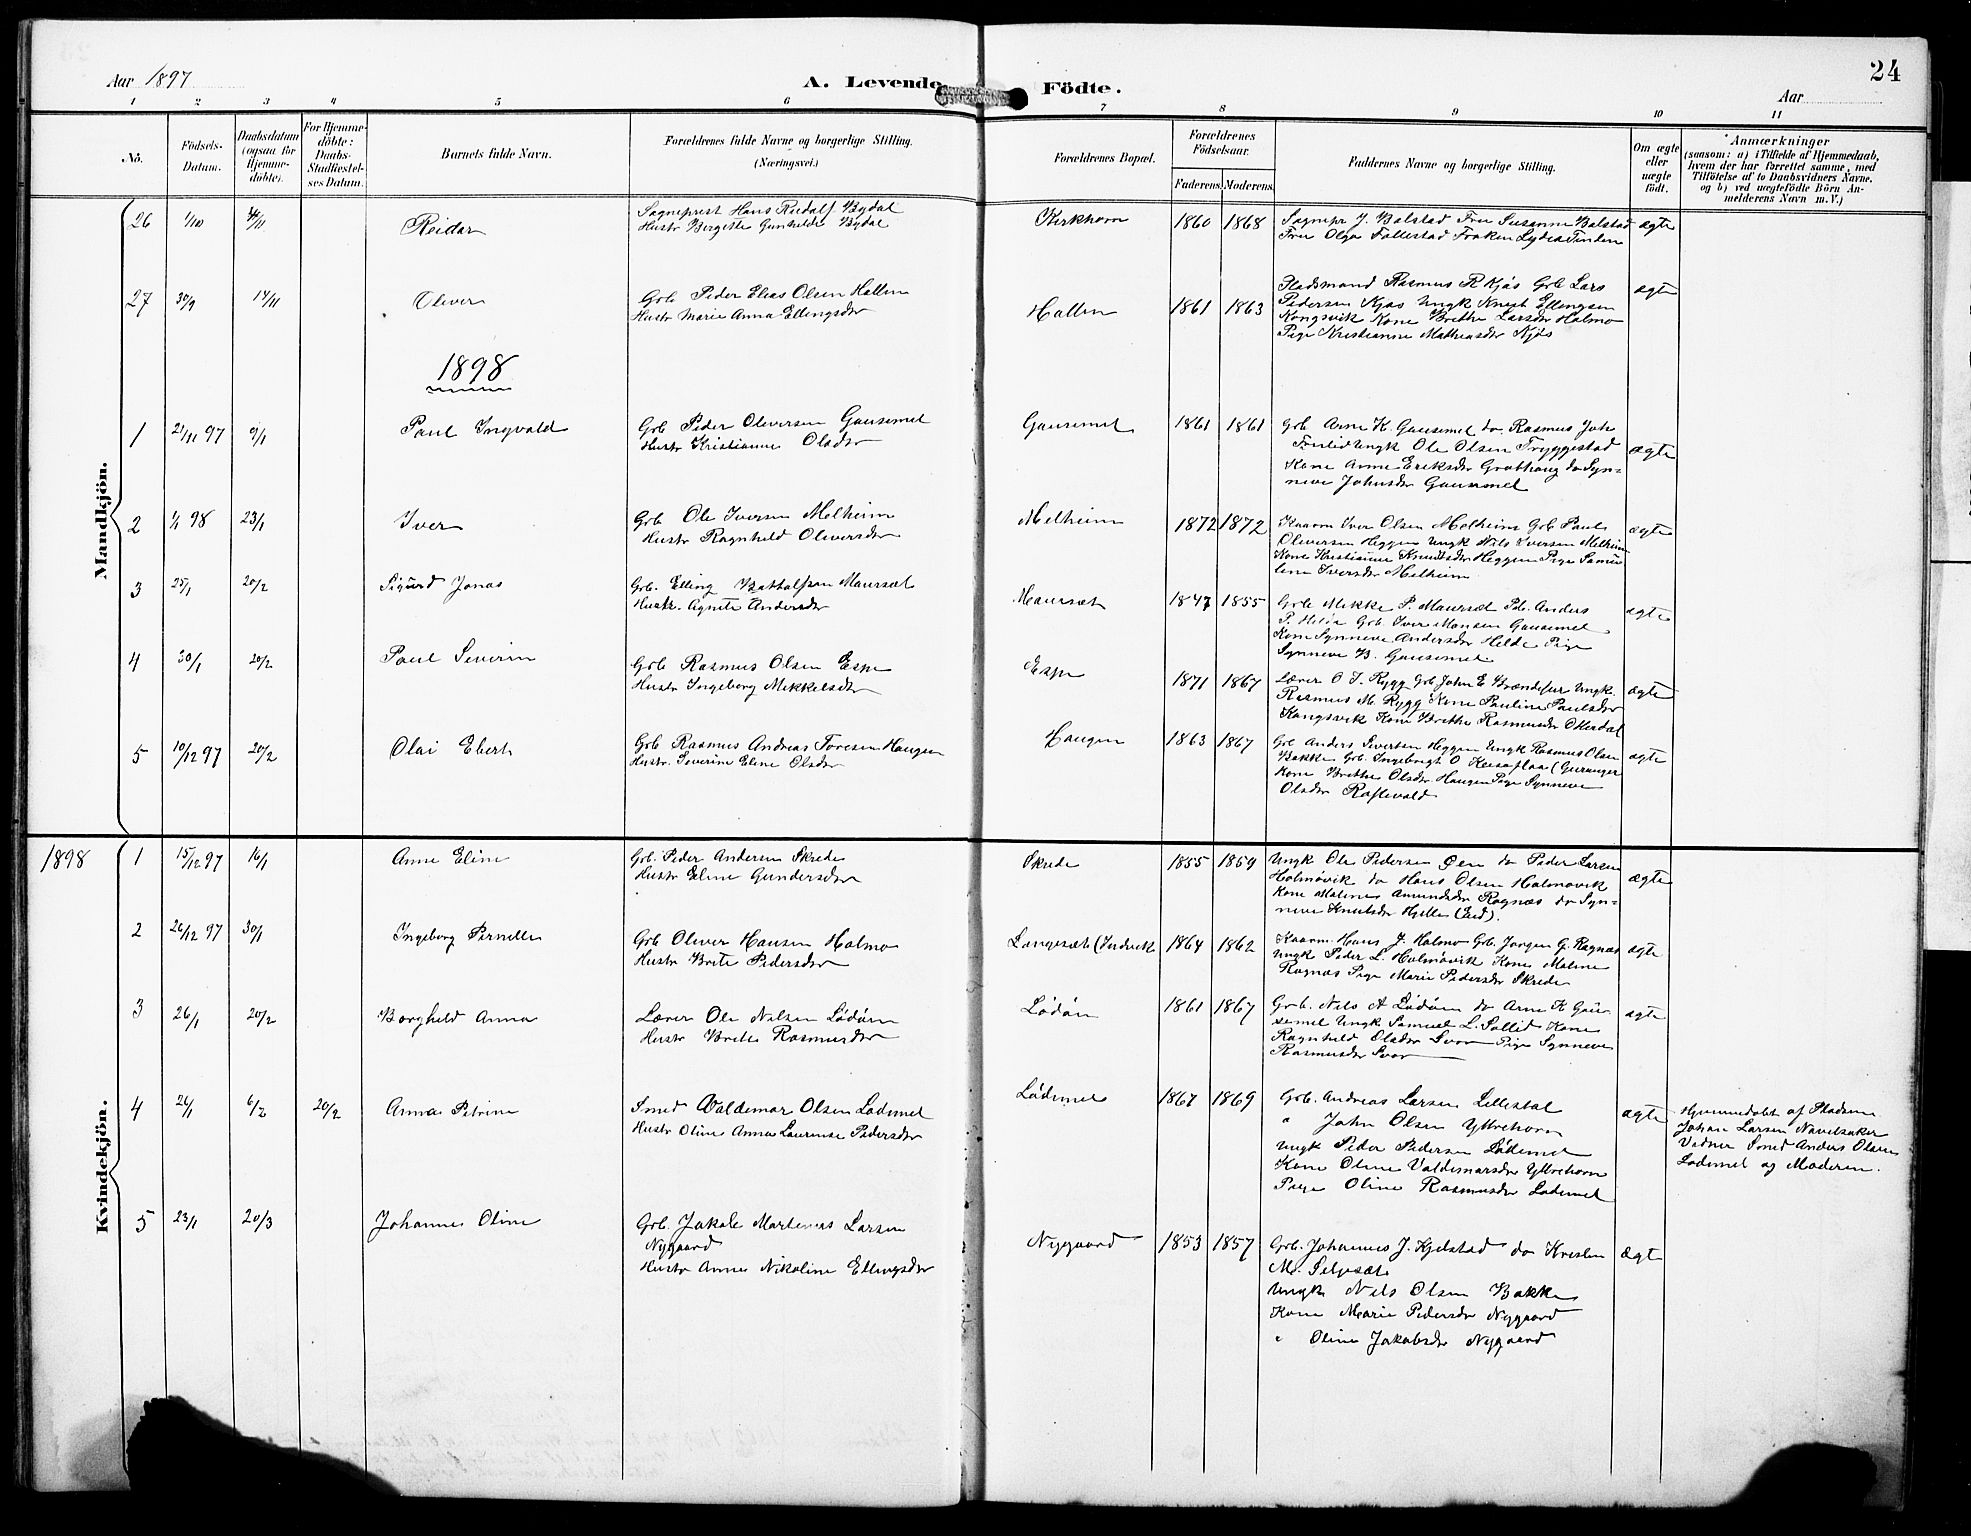 Aar 1897
A. Levende Födte.
24
Aar
1 2 3 4 5 6 7 8 9 10 11
No.
Födsels-Datum.
Daabsdatum (ogsaa for Hjemme-döbte).
For Hjemme-döbte: Daabs-Stadfæstel-ses Datum.
Barnets fulde Navn.
Forældrenes fulde Navne og borgerlige Stilling. (Næringsvei.)
Forældrenes Bopæl.
Forældrenes Födselsaar.
Faderens. Moderens.
Faddernes Navne og borgerlige Stilling.
Om ægte eller uægte födt.
Anmærkninger
(saasom: a) i Tilfælde af Hjemmedaab,
hvem der har forrettet samme, med
Tilföielse af to Daabsvidners Navne,
og b) ved uægtefödte Börn An-
melderens Navn m. V.)
Mandkjön.
26 1/10 Reidar
Sogneprest Hans Riedolf Bydal
Hustr Birgitte Gunhilde Bydal
Kirkhorn 1860 1868
Sognepr J. Balstad Fru Susanne Balstad
Fru Olga Fallestad Frøken Lydia Tinden
ægte
27 30/9 14/11 Oliver
Grb Peder Elias Olsen Hallen
Hustr Marie Anna Ellingsdr
Hallen 1861 1863
Pladsmand Rasmus R Kjós Grb Lars
Pedersen Kjós Ungk Knut Ellingsen
Kongsvik Kone Brithe Larsdr Holmo
Pige Kristianne Mathiasdr Kjós
ægte
1898
1 21/11 97 9/1 Paul Ingvald
Grb Peder Oliversen Gausemel
Hustr Kristianne Olsdr
Gausemel 1861 1861
Grb Arne K. Gausemel do Rasmus Joh
Ungk Ole Olsen Tryggestad
Kone Anne Eriksdr Grothaug do Syn-
neve Johnsdr Gausemel
ægte
2 1/1 98 23/1 Iver
Grb Ole Iversen Melheim
Hustr Ragnhild Oliversdr
Melheim 1872 1872
Kaarm Iver Olsen Melheim Grb Paul
Oliversen Heggen Ungk Nils Iversen Melheim
Kone Kristianne Knudsdr Heggen Pige Samue
line Iversdr Melheim
ægte
3 25/1 20/2 Sigurd Jonas
Grb. Elling Bathalfsen Maursæt
Hustr. Agnete Andersdr
Maursæt 1847 1855
Grb Mikke P. Maursæt Grb. Anders
P. Helde Grb Iver Monsen Gausemel
Kone Synneve Andersdr Helde Pige
Synneve B. Gausemel
ægte
4 30/1 20/2 Paul Severin
Grb Rasmus Olsen Espe
Hustr Ingeborg Mikkelsdr
Espe 1871 1867
Lærer O J. Rygg Grb John E Brændefur Ungk
Rasmus M. Rygg Kone Pauline Paulsdr
Kongsvik Kone Brithe Rasmusdr Otterdal
ægte
5 10/12 97 20/2 Olai Ebert
Grb Rasmus Andreas Toresen Haugen
Hustr. Severine Eline Olsdr
Haugen 1863 1867
Grb Anders Sivertsen Heggen Ungk Rasmus Olsen
Bakke Grb Ingebrigt O (Geiranger
Kone Brithe Olsdr Haugen Pige Synneve
Olsdr Raftevold
ægte
Kvindekjön.
1898
1 15/12 97 16/1 Anne Eline
Grb. Peder Andersen Skrede
Hustr Eline Gundersdr
Skrede 1855 1859
Ungk Ole Pedersen Øen do Peder Larsen
Holmövik do Hans Olsen Holmövik
Kone Maline Amundsdr Rognæs do Syn-
neve Knutsdr Hjelle (Eid).
ægte
2 26/12 97 30/1 Ingeborg Pernille
Grb Oliver Hansen Holmo
Hustr Brite Pedersdr
Langesæt (Indvik 1864 1862
Kaarm. Hans J. Holmo Grb. Jorgen G. Rognæs
Ungk Peder L. Holmövik Kone Maline
Rognæs Pige Marie Pedersdr Skrede
ægte
3 26/1 20/2 Borghild Anna
Lærer Ole Nilsen Lödöen
Hustr Brite Rasmusdr
Lödöen 1861 1867
Grb. Nils A Lödöen do Arne K Gau-
semel Ungk Samuel L. Sollid Kone
Ragnhild Olsdr Svor Pige Synneve
Rasmusdr Svor
ægte
4 26/1 6/2 20/2 Anna Petrine
Smed Valdemar Olsen Lödemel
Hustr Oline Anna Laurense Pedersdr
Lödemel 1867 1869
Grb. Andreas Larsen Lillestöl
" John Olsen Yttrehorn
Ungk Peder Pedersen Lödemel
Kone Oline Valdemarsdr Yttrehorn
Pige Oline Rasmusdr Lödemel
ægte
Hjemmedöbt af Pladsm.
Johan Larsen Navelsaker
Vidner Smed Anders Olsen
Lödemel og Moderen.
5 23/1 20/3 Johannes Oline
Grb. Jakob Martinus Larsen
Nygaard
Hustr Anne Nikoline Ellingsdr
Nygaard 1853 1857
Grb. Johannes J. Kjelstad do Kristen
M. Seljesæt
Ungk Nils Olsen Bakke
Kone Marie Pedersdr Nygaard
" Oline Jakobsdr Nygaard
ægt